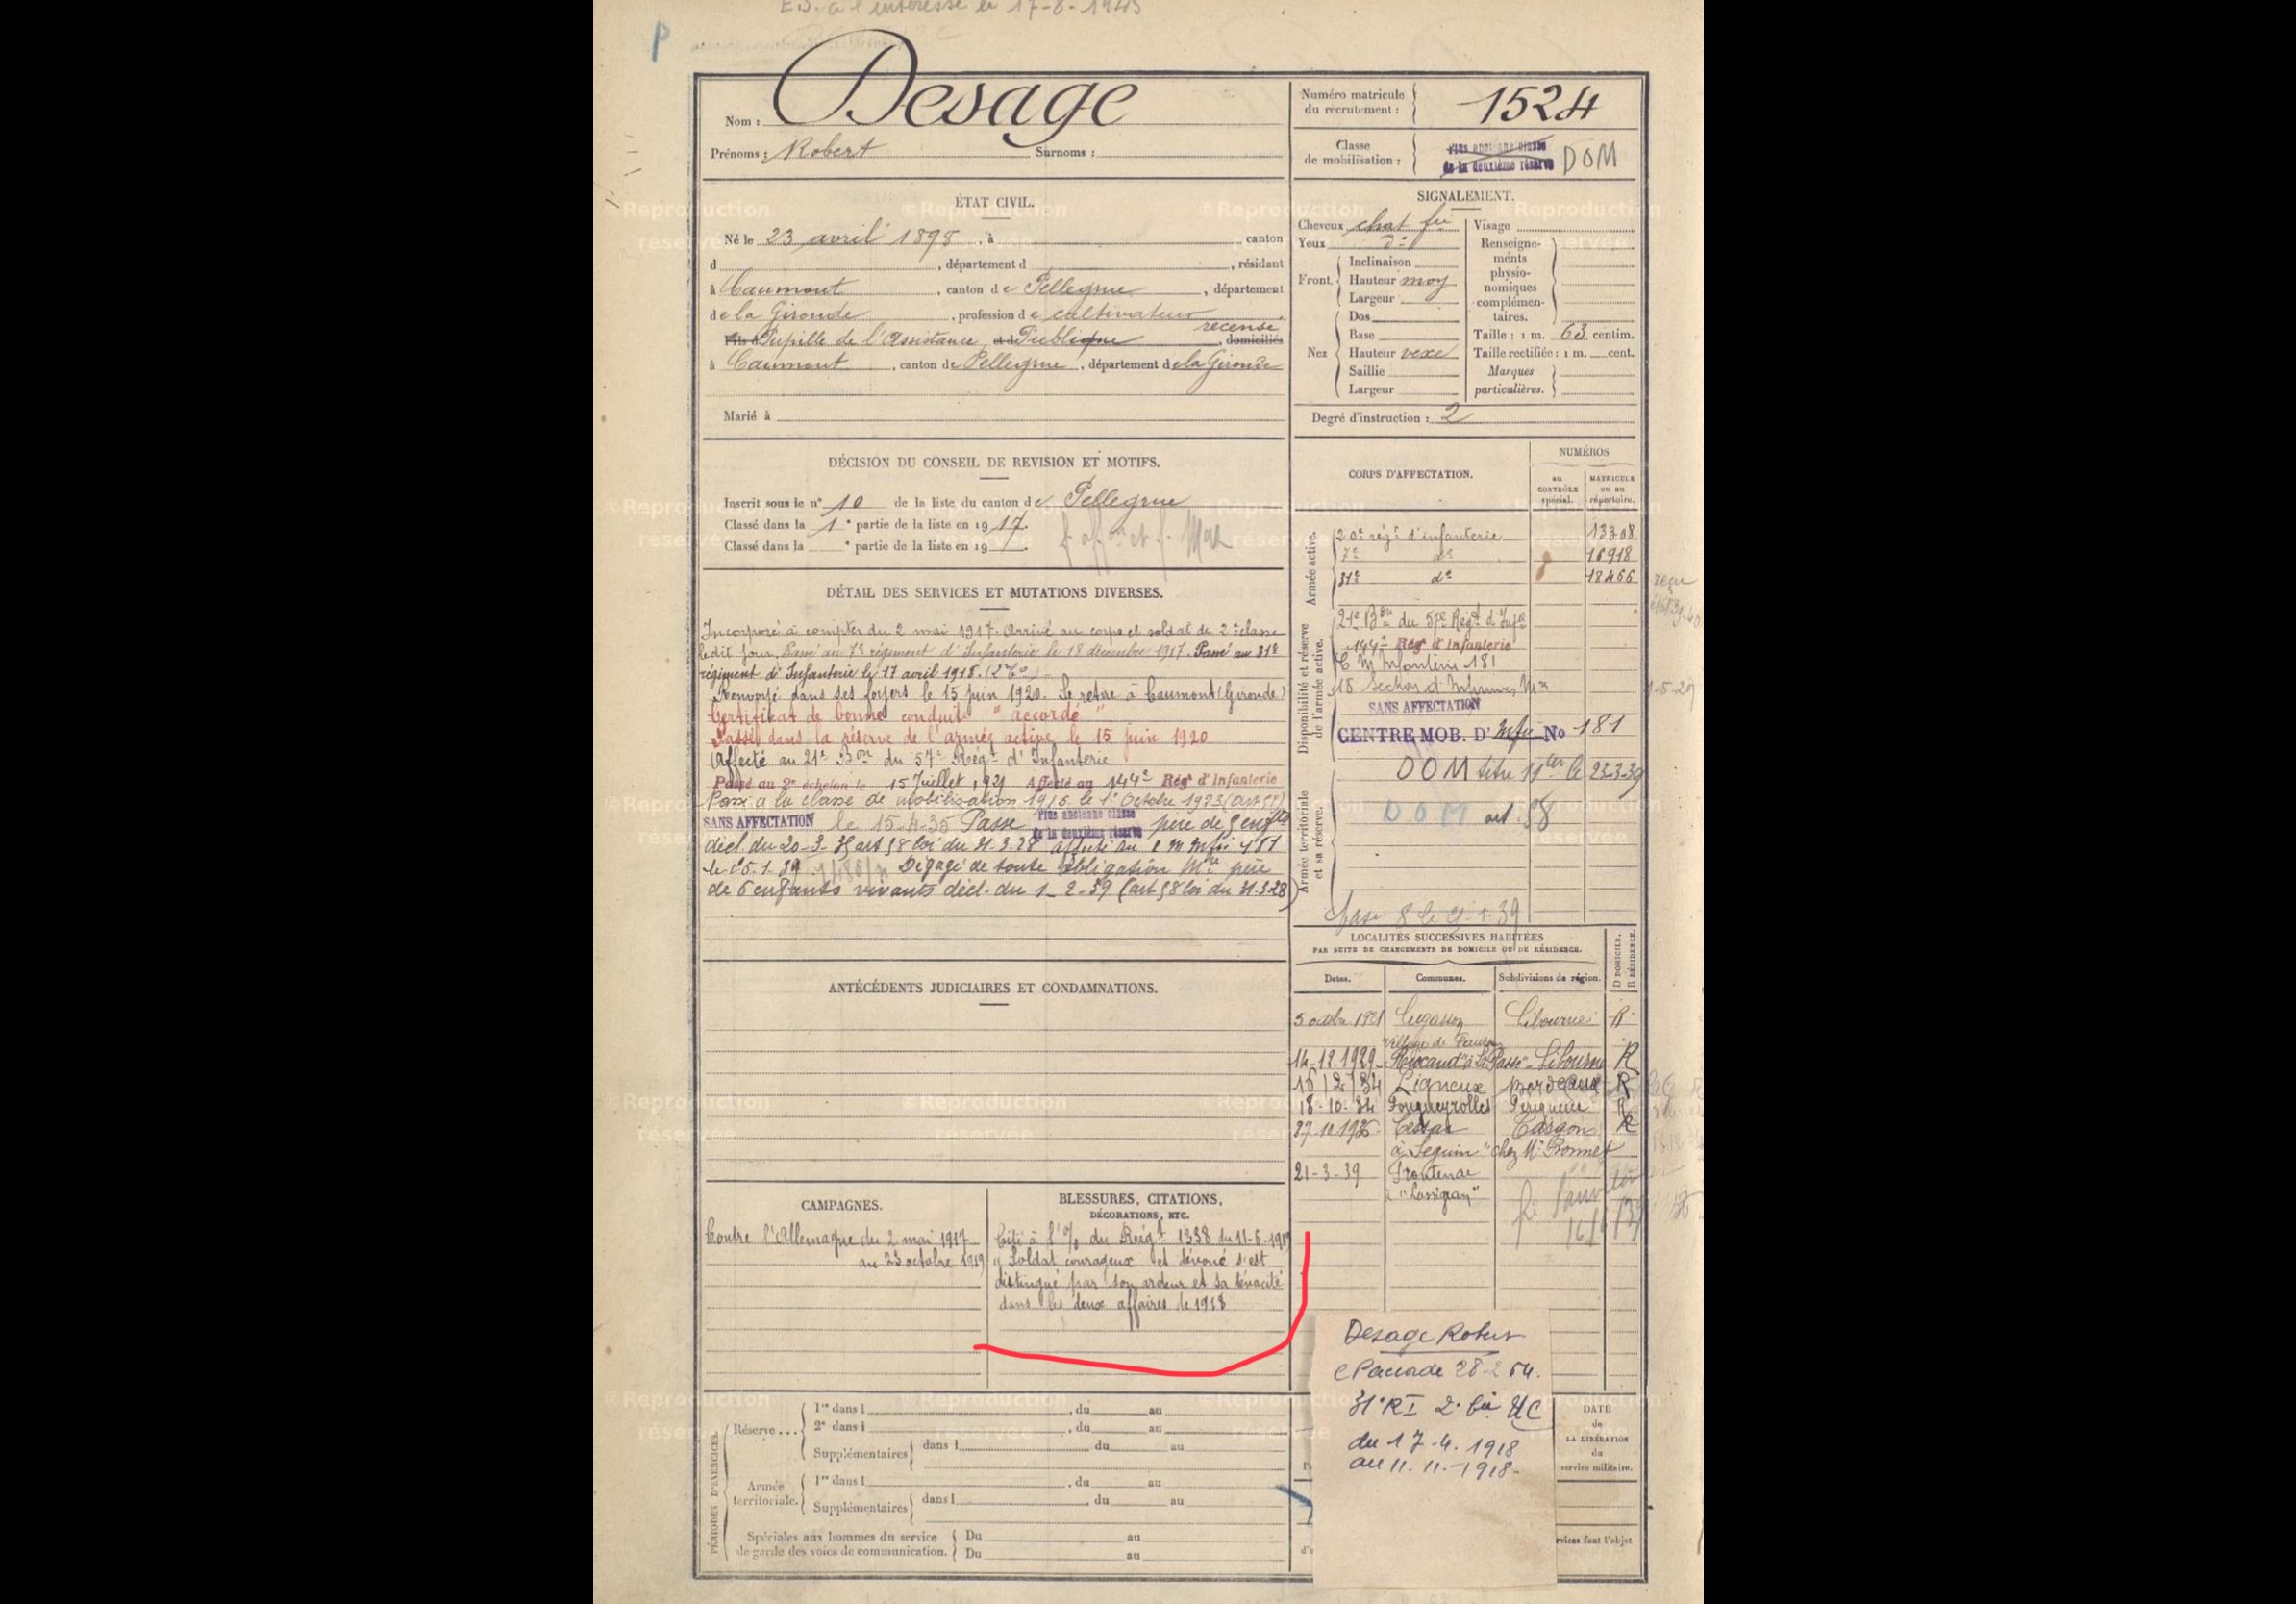 E.S. à l'intéressé le 17-8-1943
P
Nom : Desage
Prénoms : Robert Surnoms :
Numéro matricule
du recrutement : 1524
Classe
de mobilisation :
Plus ancienne classe
de la deuxième réserve DOM
ÉTAT CIVIL.
Né le 23 avril 1898, à canton
d , département d , résidant
à Caumont , canton de Pellegrue , département
de la Gironde , profession de cultivateur
recensé
Fils d Pupille de l'Assistance et d Publique , domiciliés
à Caumont , canton de Pellegrue , département de la Gironde
Marié à
SIGNALEMENT.
Cheveux chat fcé
Yeux d°
Front.
Inclinaison
Hauteur moy
Largeur
Nez
Dos
Base
Hauteur vexe
Saillie
Largeur
Visage
Renseigne-
ments
physio-
nomiques
complémen-
taires.
Taille : 1 m. 63 centim.
Taille rectifiée : 1 m. cent.
Marques
particulières.
Degré d'instruction : 2
DÉCISION DU CONSEIL DE REVISION ET MOTIFS.
Inscrit sous le n° 10 de la liste du canton de Pellegrue
Classé dans la 1e partie de la liste en 1917.
Classé dans la e partie de la liste en 19
DÉTAIL DES SERVICES ET MUTATIONS DIVERSES.
Incorporé à compter du 2 mai 1917. Arrivé au corps et soldat de 2e classe
ledit jour. Passé au 7e régiment d'Infanterie le 18 décembre 1917. Passé au 31e
régiment d'Infanterie le 17 avril 1918.
Renvoyé dans ses foyers le 15 juin 1920. Se retire à Caumont (Gironde)
Certificat de bonne conduite "accordé"
Passé dans la réserve de l'armée active le 15 juin 1920
Affecté au 21e Bon du 57e Régt d'Infanterie
Passé au 2e échelon le 15 Juillet 1921 Affecté au 144e Régt d'Infanterie
Passé à la classe de mobilisation 1916 le 1er Octobre 1923
SANS AFFECTATION le 15-4-35 Passé Plus ancienne classe de la deuxième réserve père de 5 enfts
décl. du 20-3-35 art 58 loi du 31.3.28 affecté au C M Infie 181
le 15.1.39. Dégagé de toute obligation Mre père
de 6 enfants vivants décl. du 1-2-39 (art 58 loi du 31.3.28)
CORPS D'AFFECTATION.
NUMÉROS
au
CONTRÔLE
spécial.
MATRICULE
ou au
répertoire.
Armée active.
20e régt d'infanterie 13308
7e d° 16918
31e d° 18466
Disponibilité et réserve
de l'armée active.
21e Bon du 57e Régt d'Infie
144e Régt d'Infanterie
C M Infanterie 181
18 Section d'Infirmiers Mres
SANS AFFECTATION
CENTRE MOB. D'Infie No 181
DOM
Armée territoriale
et sa réserve.
D.O.M art. 58
LOCALITÉS SUCCESSIVES HABITÉES
PAR SUITE DE CHANGEMENTS DE DOMICILE OU DE RÉSIDENCE.
Dates. Communes. Subdivisions de région. D DOMICILE. R RÉSIDENCE.
5 octobre 1921 Lugasson Libourne R
14-12-1929 Libourne R
15 12 34 Ligneux R
18-10-34 Fougueyrolles Périgueux R
27.10.1935 Cessac Targon R
à Seguin "chez Mr
21-3-39 Frontenac
à "Lassigran"
ANTÉCÉDENTS JUDICIAIRES ET CONDAMNATIONS.
CAMPAGNES.
Contre l'Allemagne du 2 mai 1917
au 23 octobre 1919
BLESSURES, CITATIONS,
DÉCORATIONS, ETC.
Cité à l'o/ du Régt 1338 du 11-6-1919
"Soldat courageux et dévoué s'est
distingué par son ardeur et sa ténacité
dans les deux affaires de 1918
Desage Robert
C P accordé 28-2 54.
31e RI 2e bie UC
du 17-4-1918
au 11.11.-1918-
PÉRIODES D'EXERCICES.
Réserve ...
1re dans l , du au
2e dans l , du au
Supplémentaires dans l du au
Armée
territoriale.
1re dans l , du au
Supplémentaires dans l , du au
Spéciales aux hommes du service
de garde des voies de communication.
Du au
Du au
DATE
de
LA LIBÉRATION
du
service militaire.
rvices font l'objet
©Reproduction
réservée